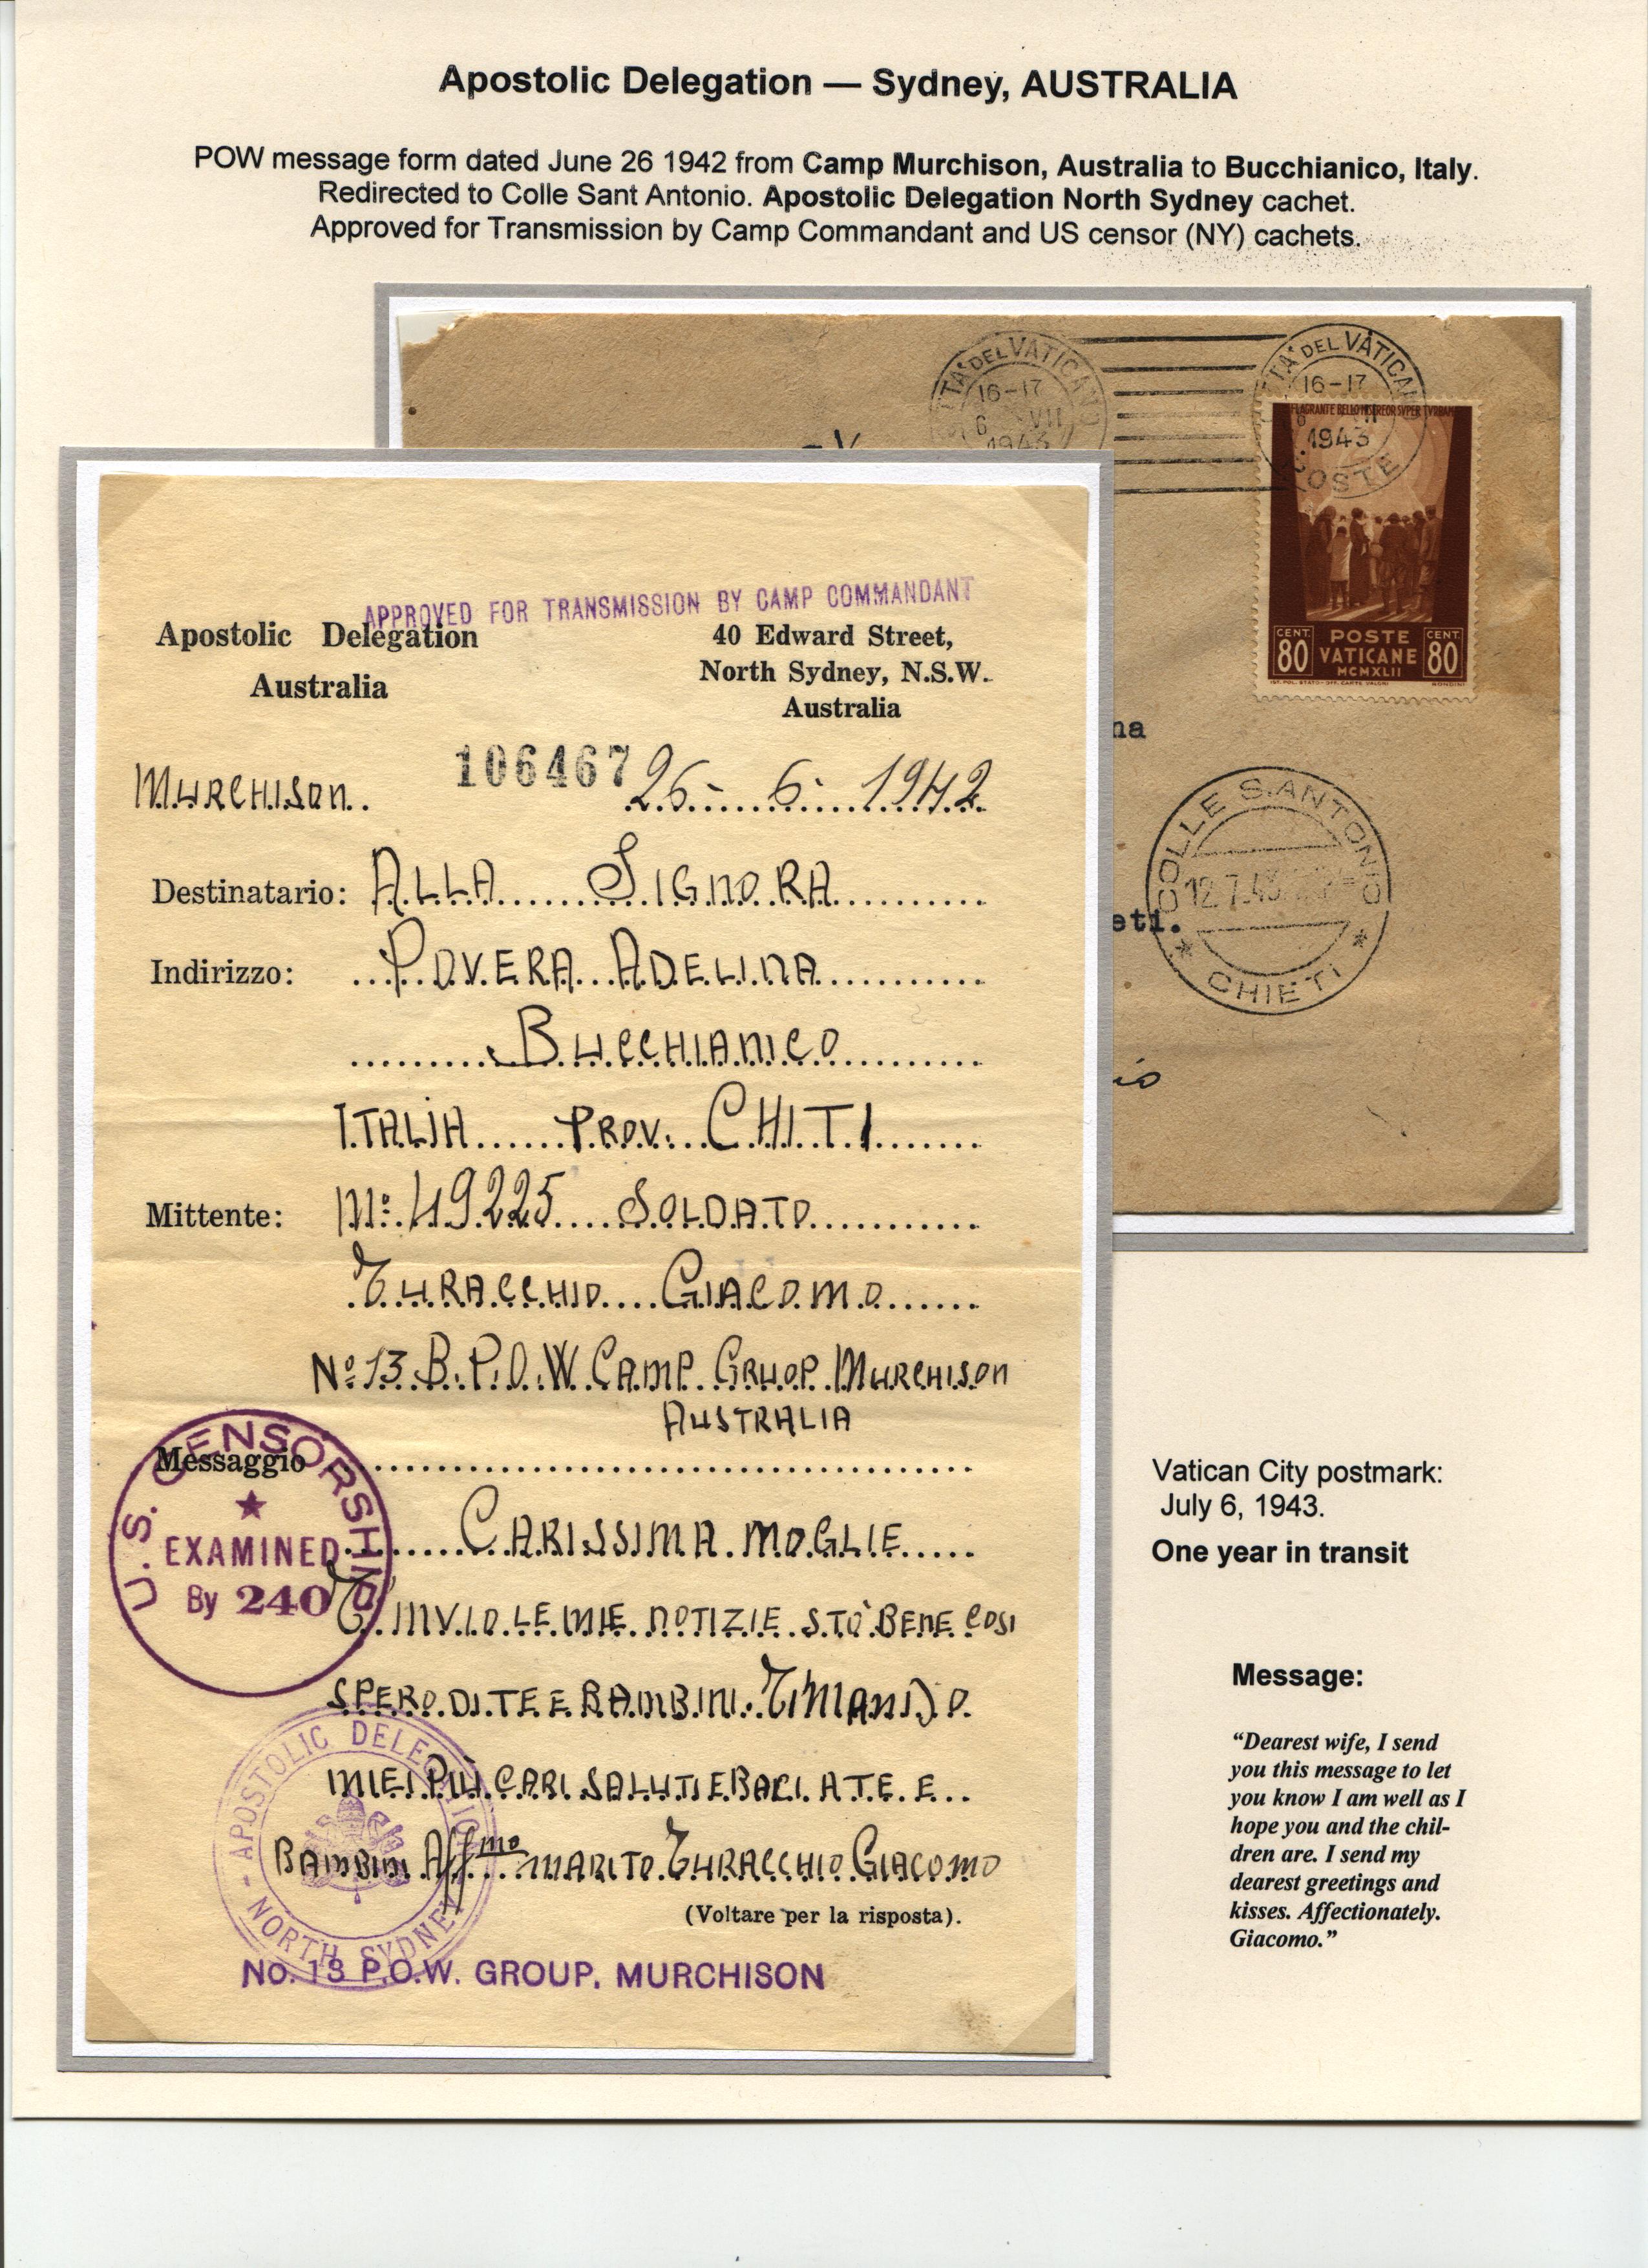 Apostolic Delegation — Sydney, AUSTRALIA
POW message form dated June 26 1942 from Camp Murchison, Australia to Bucchianico, Italy.
Redirected to Colle Sant Antonio. Apostolic Delegation North Sydney cachet.
Approved for Transmission by Camp Commandant and US censor (NY) cachets.
TA' DEL VATICANO
16-17
6 VII
1943
TA' DEL VATICAN
16-17
6 VII
1943
POSTE
FLAGRANTE BELLO MISEREOR SVPER TVRBAM
CENT. 80
POSTE VATICANE
MCMXLII
CENT. 80
IST. POL. STATO-OFF. CARTE VALORI
MONDINI
na
eti.
COLLE S.ANTONIO
12.7.43
* CHIETI *
io
APPROVED FOR TRANSMISSION BY CAMP COMMANDANT
Apostolic Delegation
Australia
40 Edward Street,
North Sydney, N.S.W.
Australia
106467
MURCHISON. 26- 6- 1942
Destinatario: ALLA SIGNORA
Indirizzo: POVERA ADELINA
BUCCHIANICO
ITALIA PROV. CHITI
Mittente: Mº 49225 SOLDATO
TURACCHIO GIACOMO
Nº 13 B. P.O.W. CAMP GRUOP MURCHISON
AUSTRALIA
Messaggio
U.S. CENSORSHIP
★
EXAMINED
By 240
CARISSIMA MOGLIE
T'INVIO LE MIE NOTIZIE STO' BENE COSI
SPERO DI TE E BAMBINI. TI MANDO
MIEI PIÙ CARI SALUTI E BACI A TE E
BAMBINI Affmo MARITO TURACCHIO GIACOMO
(Voltare per la risposta).
APOSTOLIC DELEGATION
NORTH SYDNEY
No. 13 P.O.W. GROUP, MURCHISON
Vatican City postmark:
July 6, 1943.
One year in transit
Message:
“Dearest wife, I send
you this message to let
you know I am well as I
hope you and the chil-
dren are. I send my
dearest greetings and
kisses. Affectionately.
Giacomo.”